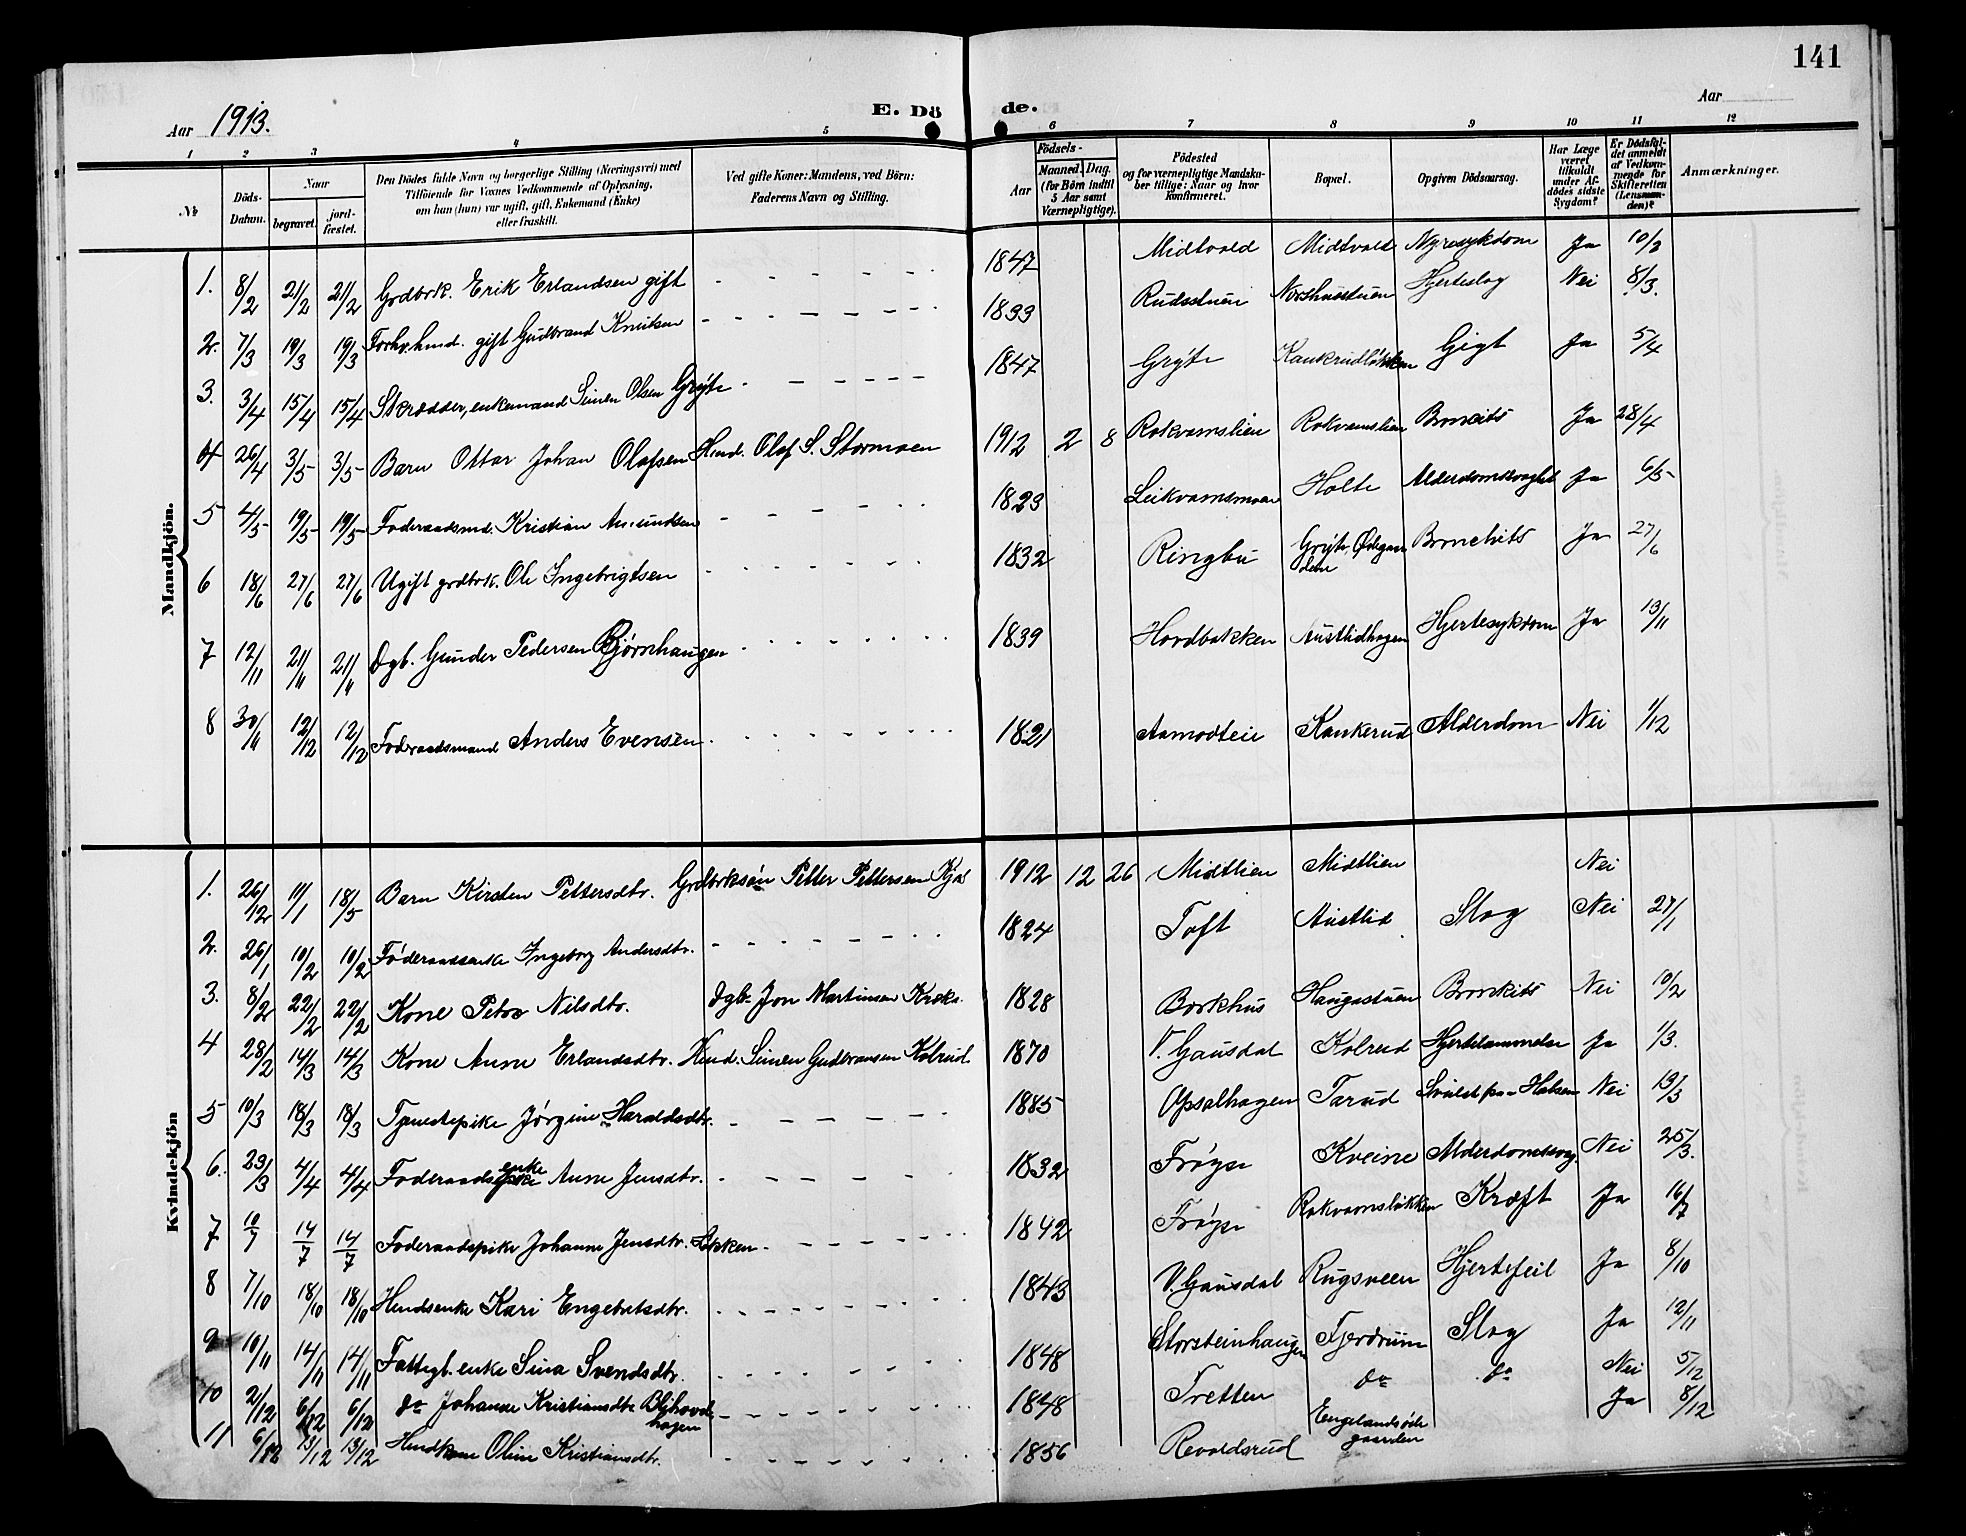 141
Aar 1913.
E. Dö de.
Aar
1 2 3 4 5 6 7 8 9 10 11 12
№
Döds-Datum.
Naar
begravet.
jord-fæstet.
Den Dödes fulde Navn og borgerlige Stilling (Næringsvei) med
Tilföiende for Voxnes Vedkommende af Oplysning,
om han (hun) var ugift, gift, Enkemand (Enke)
eller fraskilt.
Ved gifte Koner: Mandens, ved Börn:
Faderens Navn og Stilling.
Födsels-
Aar
Maaned. Dag.
(for Börn indtil
5 Aar samt
Værnepligtige).
Födested
og for værnepligtige Mandska-
ber tillige: Naar og hvor
konfirmeret.
Bopæl.
Opgiven Dödsaarsag.
Har Læge
været
tilkaldt
under Af-
dödes sidste
Sygdom?
Er Dödsfal-
det anmeldt
af Vedkom-
mende for
Skifteretten
(Lensman-
den)?
Anmærkninger.
Mandkjön.
1. 8/2 21/2 21/2 Grdbrk. Erik Erlandsen gift 1847 Midtvold Midtvold Nyresykdom Ja 10/2
2. 7/3 19/3 19/3 Forhv. hmd. gift Gudbrand Knutsen 1833 Rudsstuen Norshusstuen Hjerteslag Nei 8/3.
3. 3/4 15/4 15/4 Skrædder, enkemand Simen Olsen Gryte 1847 Gryte Kankrudløkken Gigt Ja 5/4
4 26/4 3/5 3/5 Barn Ottar Johan Olafsen Hmd. Olaf S. Stormoen 1912 2 8 Rokvamslien Rokvamslien Bronkits Ja 28/4
5 4/5 19/5 19/5 Foderaadsmd. Kristian Amundsen 1823 Leikvamsmoen Holte Alderdomssvaghet Ja 6/5
6 18/6 27/6 27/6 Ugift grdbrk. Ole Ingebrigtsen 1832 Ringbu Gryte, Ødegaarden Bronchits Ja 27/6
7 12/11 21/11 21/11 Dgb. Gunder Pedersen Bjørnhaugen 1839 Hovdbakken Austlidhagen Hjertesykdom Ja 13/11
8 30/11 12/12 12/12 Foderaadsmand Anders Evensen 1821 Aamodteie Kankerud Alderdom Nei 1/12
Kvindekjön
1. 26/12 11/1 18/5 Barn Kirsten Pettersdtr. Grdbrksøn Petter Pettersen 1912 12 26 Midtlien Midtlien Nei
2. 26/1 10/2 10/2 Föderaadsenke Ingeborg Andersdtr. 1824 Toft Austlid Slag Nei 27/1
3. 8/2 22/2 22/2 Kone Petra Nilsdtr. Dgb. Jon Martinsen 1828 Borkhus Haugastuen Bronkits Nei 10/2
4 28/2 14/3 14/3 Kone Anne Erlandsdtr. Hmd. Simen Gudbransen Kolrud 1870 V. Gausdal Kolrud Hjertelammelse Ja 1/3.
5 10/3 18/3 18/3 Tjenestepike Jørgine Haraldsdtr. 1885 Opsalhagen Tarud Svulst paa Halsen Nei 13/3
6. 23/3 4/4 4/4 Foderaadsenke Anne Jensdtr. 1832 Frøyse Kveine Alderdomssvag. Nei 25/3.
7 10/7 14/7 14/7 Foderaadspike Johanne Jensdtr. Løkken 1842 Frøyse Rokvamsløkken Kræft Ja 16/7
8 7/10 18/10 18/10 Hmdsenke Kari Engebretsdtr. 1843 V. Gausdal Rugsveen Hjertefeil Ja 8/10
9 10/11 14/11 14/11 Fattigl. enke Sina Svendsdtr. 1848 Storsteinhaugen Fjerdrum Slag Ja 12/11
10 2/12 6/12 6/12 do Johanne Kristiansdtr. 1848 Tretten do do Nei 5/12
11 6/12 13/12 13/12 Hmdkone Oline Kristiansdtr. 1856 Revoldsrud Engelandsødegaarden Ja 8/12